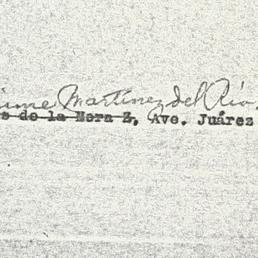 Martínez del Río
de la Mora Z, Ave. Juárez